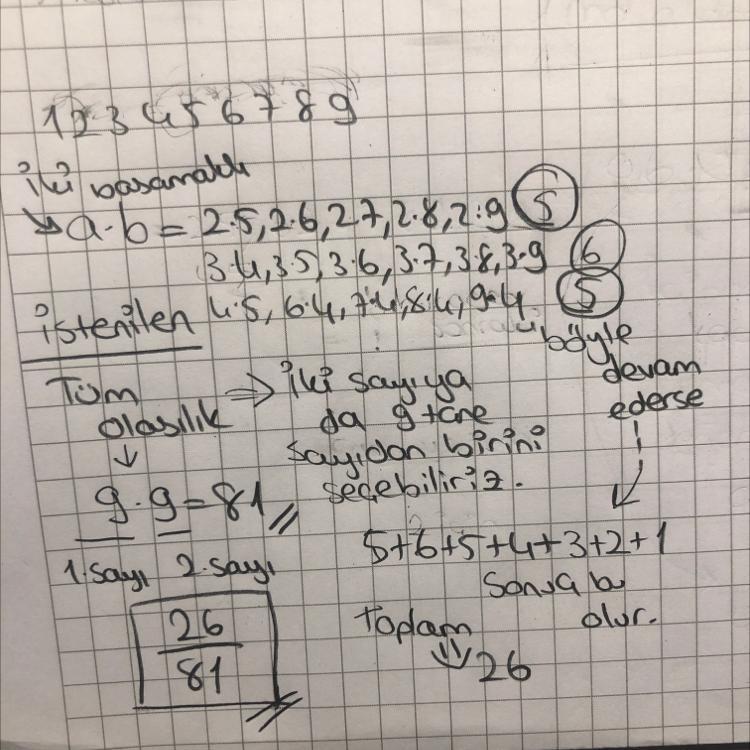 1 2 3 4 5 6 7 8 9
iki basamaklı
↘ a.b = 2.5, 2.6, 2.7, 2.8, 2.9 5
3.4, 3.5, 3.6, 3.7, 3.8, 3.9 6
4.5, 6.4, 7.4, 8.4, 9.4 5
istenilen
böyle
devam
ederse
Tüm
olasılık
⇒ iki sayıya
da 9 tane
sayıdan birini
seçebiliriz.
9.9=81
1.sayı 2.sayı
5+6+5+4+3+2+1
sonra bu
olur.
Toplam
26
26
81